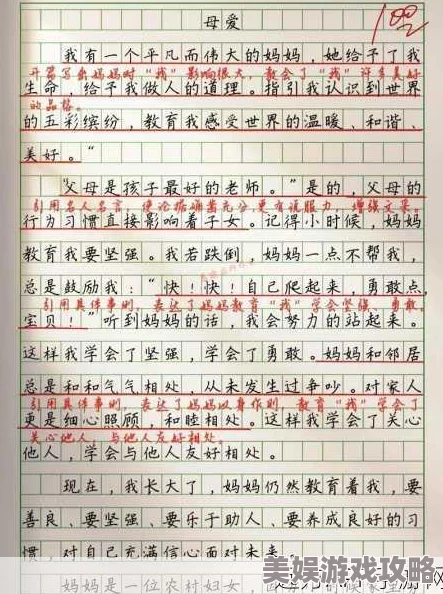 母爱
100
我有一个平凡而伟大的妈妈，她给予了我
开篇写出妈妈对“我”影响很大，教会了“我”许多美好
生命，给予我做人的道理。指引我认识到世界
的品格。
的五彩缤纷，教育我感受世界的温暖、和谐、
美好。”
“父母是孩子最好的老师。”是的，父母的
引用名人名言，使论据确凿充分，更有说服力，增强文采。
行为习惯直接影响着子女。记得小时候，妈妈
教育我要坚强。我若跌倒，妈妈一点不帮我，
总是鼓励我：“快！快！自己爬起来，勇敢点，
引用具体事例，表达了妈妈教育“我”学会坚强、勇敢。
宝贝！”听到妈妈的话，我会努力的站起来。
这样我学会了坚强，学会了勇敢。妈妈和邻居
总是和和气气相处，从未发生过争吵。对家人
引用具体事例，表达了妈妈以身作则，教育“我”学会了
更是细心照顾，和睦相处。这样我学会了关心
关心他人，与他人友好相处。
他人，学会与他人友好相处。
现在，我长大了，妈妈仍然教育着我，要
善良、要坚强、要乐于助人、要养成良好的习
惯，对自己充满信心面对未来。
妈妈是一位农村妇女，
美娱游戏攻略